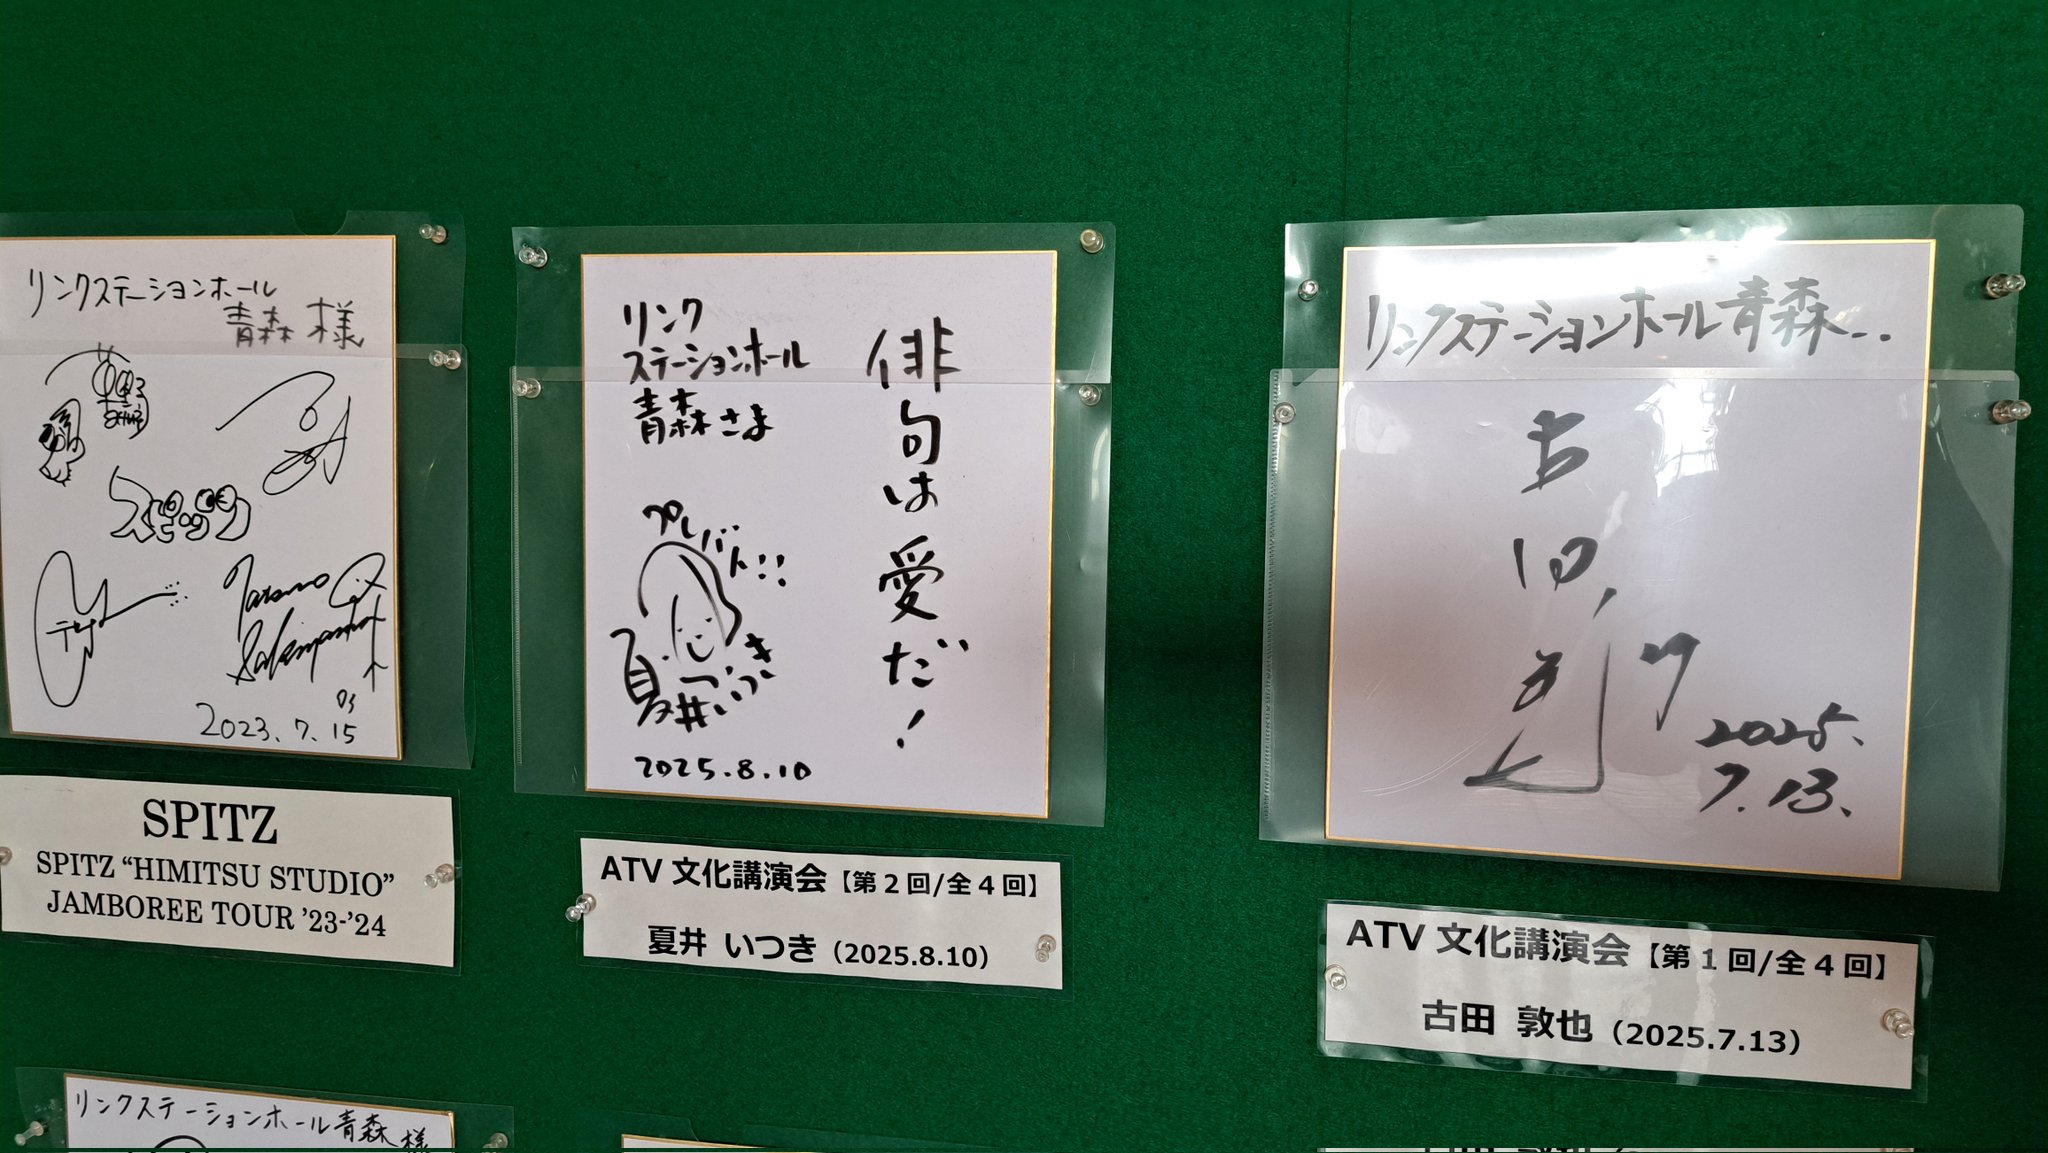 リンクステーションホール
青森 様
スピッツ
2023.7.15
SPITZ
SPITZ “HIMITSU STUDIO”
JAMBOREE TOUR ’23-’24
俳句は愛だ!
リンク
ステーションホール
青森さま
プレバト!!
夏井いつき
2025.8.10
ATV 文化講演会【第2回/全4回】
夏井 いつき（2025.8.10）
リンクステーションホール青森
古田
2025.
7.13.
ATV 文化講演会【第1回/全4回】
古田 敦也（2025.7.13）
リンクステーションホール青森 様